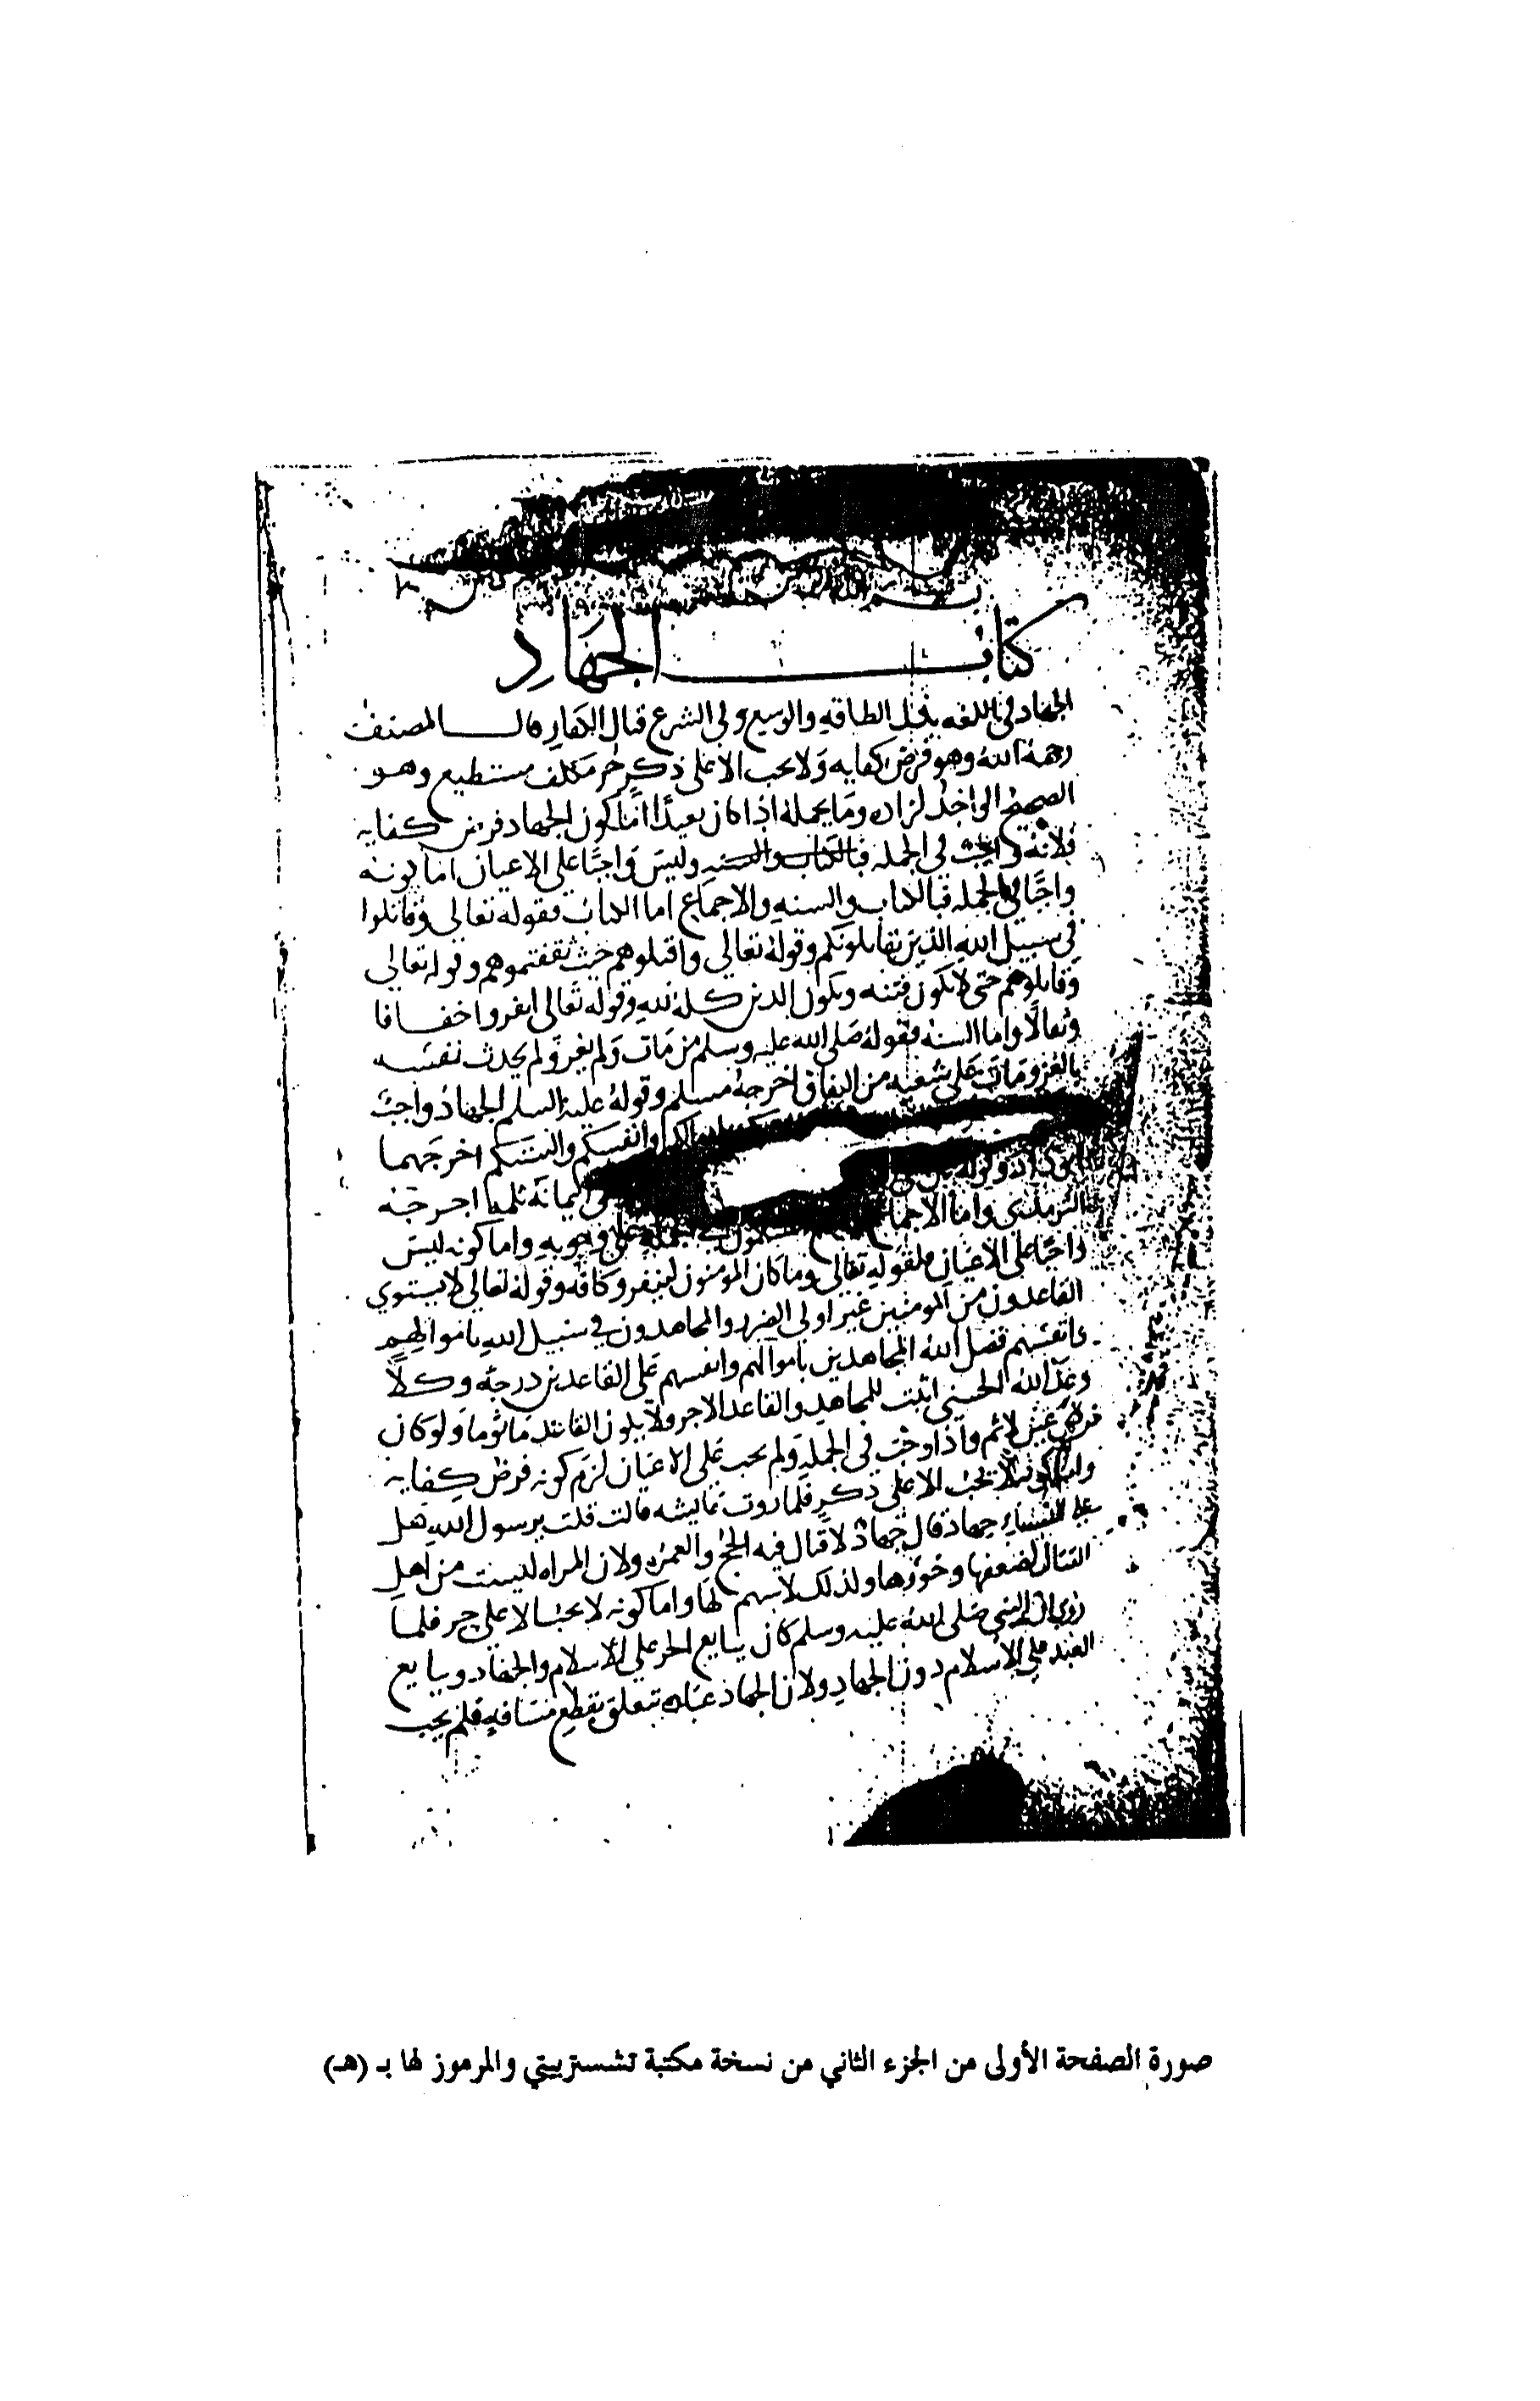 بسم الله الرحمن
كتاب الجهاد
الجهاد في اللغه بذل الطاقه والوسع وفي الشرع قتال الكفار قال المصنف
رحمه الله وهو فرض كفايه ولا يجب الا على ذكر حر مكلف مستطيع وهو
الصحيح الواجد لزاده وما يحمله اذا كان بعيدًا اما كون الجهاد فرض كفايه
فلانه واجب في الجمله فبالكتاب والسنه وليس واجبًا على الاعيان اما كونه
واجبًا في الجمله فبالكتاب والسنه والاجماع اما الكتاب فقوله تعالى وقاتلوا
في سبيل الله الذين يقاتلونكم وقوله تعالى واقتلوهم حيث ثقفتموهم وقوله تعالى
وقاتلوهم حتى لا تكون فتنه ويكون الدين كله لله وقوله تعالى انفروا خفافا
وثقالًا واما السنه فقوله صلى الله عليه وسلم من مات ولم يغز ولم يحدث نفسه
بالغزو مات على شعبه من النفاق اخرجه مسلم وقوله عليه السلم الجهاد واجب
وانفسكم والسنتكم اخرجهما
ابو داود وقوله اخرجه
الترمذي واما الاجماع على وجوبه واما كونه ليس
واجبًا على الاعيان فلقوله تعالى وما كان المومنون لينفروا كافه وقوله تعالى لا يستوي
القاعدون من المومنين غير اولى الضرر والمجاهدون في سبيل الله باموالهم
وانفسهم فضل الله المجاهدين باموالهم وانفسهم على القاعدين درجه وكلًا
وعد الله الحسنى اثبت للمجاهد والقاعد الاجر ولا يكون القاعد ماثومًا ولو كان
فرض عين لاثم واذا وجب في الجمله ولم يجب على الاعيان لزم كونه فرض كفايه
واما كونه لا يجب الا على ذكر فلما روت عايشه قالت قلت يرسول الله هل
على النساء جهاد قال جهاد لا قتال فيه الحج والعمره ولان المراه ليست من اهل
القتال لضعفها وخورها ولذلك لا يسهم لها واما كونه لا يجب الا على حر فلما
روي ان النبي صلى الله عليه وسلم كان يبايع الحر على الاسلام والجهاد ويبايع
العبد على الاسلام دون الجهاد ولان الجهاد عباده تتعلق بقطع مسافه فلم يجب
صورة الصفحة الأولى من الجزء الثاني من نسخة مكتبة تشستربيتي والمرموز لها بـ (هـ)